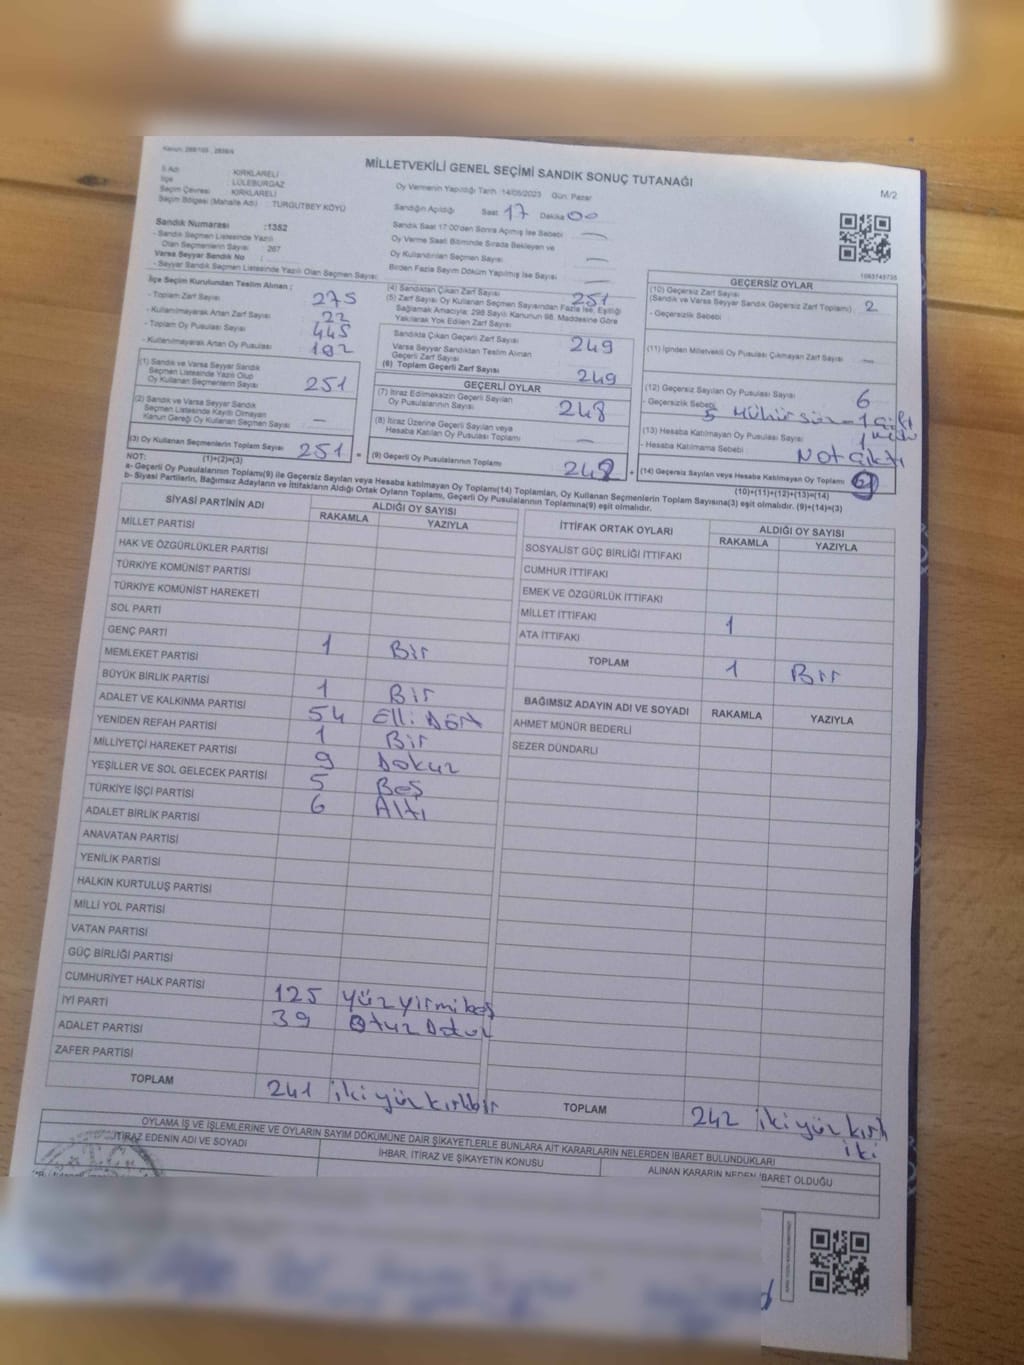 Kanun: 298/105 , 2839/4
MİLLETVEKİLİ GENEL SEÇİMİ SANDIK SONUÇ TUTANAĞI
M/2
İl Adı : KIRKLARELİ
İlçe : LÜLEBURGAZ
Seçim Çevresi : KIRKLARELİ
Seçim Bölgesi (Mahalle Adı) : TURGUTBEY KÖYÜ
Oy Vermenin Yapıldığı Tarih :14/05/2023 Gün: Pazar
Sandığın Açıldığı Saat 17 Dakika 00
Sandık Saat 17:00'den Sonra Açılmış İse Sebebi —
Oy Verme Saati Bitiminde Sırada Bekleyen ve
Oy Kullandırılan Seçmen Sayısı —
Birden Fazla Sayım Döküm Yapılmış İse Sayısı —
Sandık Numarası :1352
- Sandık Seçmen Listesinde Yazılı
Olan Seçmenlerin Sayısı : 267
Varsa Seyyar Sandık No :
- Seyyar Sandık Seçmen Listesinde Yazılı Olan Seçmen Sayısı:
1083745735
İlçe Seçim Kurulundan Teslim Alınan ;
- Toplam Zarf Sayısı 275
- Kullanılmayarak Artan Zarf Sayısı 22
- Toplam Oy Pusulası Sayısı 445
- Kullanılmayarak Artan Oy Pusulası 192
(1) Sandık ve Varsa Seyyar Sandık
Seçmen Listesinde Yazılı Olup
Oy Kullanan Seçmenlerin Sayısı 251
(2) Sandık ve Varsa Seyyar Sandık
Seçmen Listesinde Kayıtlı Olmayan
Kanun Gereği Oy Kullanan Seçmen Sayısı —
(3) Oy Kullanan Seçmenlerin Toplam Sayısı 251 =
(1)+(2)=(3)
(4) Sandıktan Çıkan Zarf Sayısı 251
(5) Zarf Sayısı Oy Kullanan Seçmen Sayısından Fazla İse, Eşitliği
Sağlamak Amacıyla; 298 Sayılı Kanunun 98. Maddesine Göre
Yakılarak Yok Edilen Zarf Sayısı
Sandıkta Çıkan Geçerli Zarf Sayısı 249
Varsa Seyyar Sandıktan Teslim Alınan
Geçerli Zarf Sayısı
(6) Toplam Geçerli Zarf Sayısı 249
GEÇERLİ OYLAR
(7) İtiraz Edilmeksizin Geçerli Sayılan
Oy Pusulalarının Sayısı 248
(8) İtiraz Üzerine Geçerli Sayılan veya
Hesaba Katılan Oy Pusulası Toplamı —
(9) Geçerli Oy Pusulalarının Toplamı +
GEÇERSİZ OYLAR
(10) Geçersiz Zarf Sayısı
(Sandık ve Varsa Seyyar Sandık Geçersiz Zarf Toplamı) : 2
- Geçersizlik Sebebi
(11) İçinden Milletvekili Oy Pusulası Çıkmayan Zarf Sayısı —
(12) Geçersiz Sayılan Oy Pusulası Sayısı 6
- Geçersizlik Sebebi 5 Mühürsüz - 1 çift
(13) Hesaba Katılmayan Oy Pusulası Sayısı 1
- Hesaba Katılmama Sebebi Not çıktı
(14) Geçersiz Sayılan veya Hesaba Katılmayan Oy Pusulası Toplamı
(10)+(11)+(12)+(13)=(14)
NOT:
a- Geçerli Oy Pusulalarının Toplamı(9) ile Geçersiz Sayılan veya Hesaba katılmayan Oy Toplamı(14) Toplamları, Oy Kullanan Seçmenlerin Toplam Sayısına(3) eşit olmalıdır. (9)+(14)=(3)
b- Siyasi Partilerin, Bağımsız Adayların ve İttifakların Aldığı Ortak Oyların Toplamı, Geçerli Oy Pusulalarının Toplamına(9) eşit olmalıdır.
SİYASİ PARTİNİN ADI ALDIĞI OY SAYISI
RAKAMLA YAZIYLA
MİLLET PARTİSİ
HAK VE ÖZGÜRLÜKLER PARTİSİ
TÜRKİYE KOMÜNİST PARTİSİ
TÜRKİYE KOMÜNİST HAREKETİ
SOL PARTİ
GENÇ PARTİ
MEMLEKET PARTİSİ 1 Bir
BÜYÜK BİRLİK PARTİSİ 1 Bir
ADALET VE KALKINMA PARTİSİ 54 Elli Dört
YENİDEN REFAH PARTİSİ 1 Bir
MİLLİYETÇİ HAREKET PARTİSİ 9 Dokuz
YEŞİLLER VE SOL GELECEK PARTİSİ 5 Beş
TÜRKİYE İŞÇİ PARTİSİ 6 Altı
ADALET BİRLİK PARTİSİ
ANAVATAN PARTİSİ
YENİLİK PARTİSİ
HALKIN KURTULUŞ PARTİSİ
MİLLİ YOL PARTİSİ
VATAN PARTİSİ
GÜÇ BİRLİĞİ PARTİSİ
CUMHURİYET HALK PARTİSİ 125 Yüz yirmi beş
İYİ PARTİ 39 Otuz Dokuz
ADALET PARTİSİ
ZAFER PARTİSİ
TOPLAM 241 iki yüz kırkbir
İTTİFAK ORTAK OYLARI ALDIĞI OY SAYISI
RAKAMLA YAZIYLA
SOSYALİST GÜÇ BİRLİĞİ İTTİFAKI
CUMHUR İTTİFAKI
EMEK VE ÖZGÜRLÜK İTTİFAKI
MİLLET İTTİFAKI 1
ATA İTTİFAKI
TOPLAM 1 Bir
BAĞIMSIZ ADAYIN ADI VE SOYADI RAKAMLA YAZIYLA
AHMET MÜNÜR BEDERLİ
SEZER DÜNDARLI
TOPLAM 242 iki yüz kırk
iki
OYLAMA İŞ VE İŞLEMLERİNE VE OYLARIN SAYIM DÖKÜMÜNE DAİR ŞİKAYETLERLE BUNLARA AİT KARARLARIN NELERDEN İBARET BULUNDUKLARI
İTİRAZ EDENİN ADI VE SOYADI İHBAR, İTİRAZ VE ŞİKAYETİN KONUSU ALINAN KARARIN NEDEN İBARET OLDUĞU